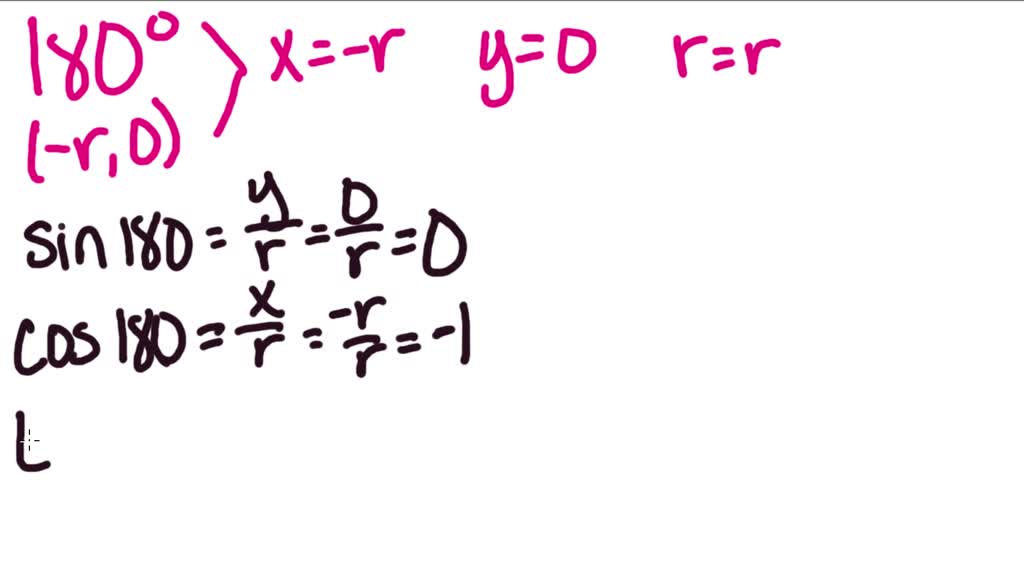 180° > x=-r y=0 r=r
(-r,0)
sin 180 = y/r = 0/r = 0
cos 180 = x/r = -r/r = -1